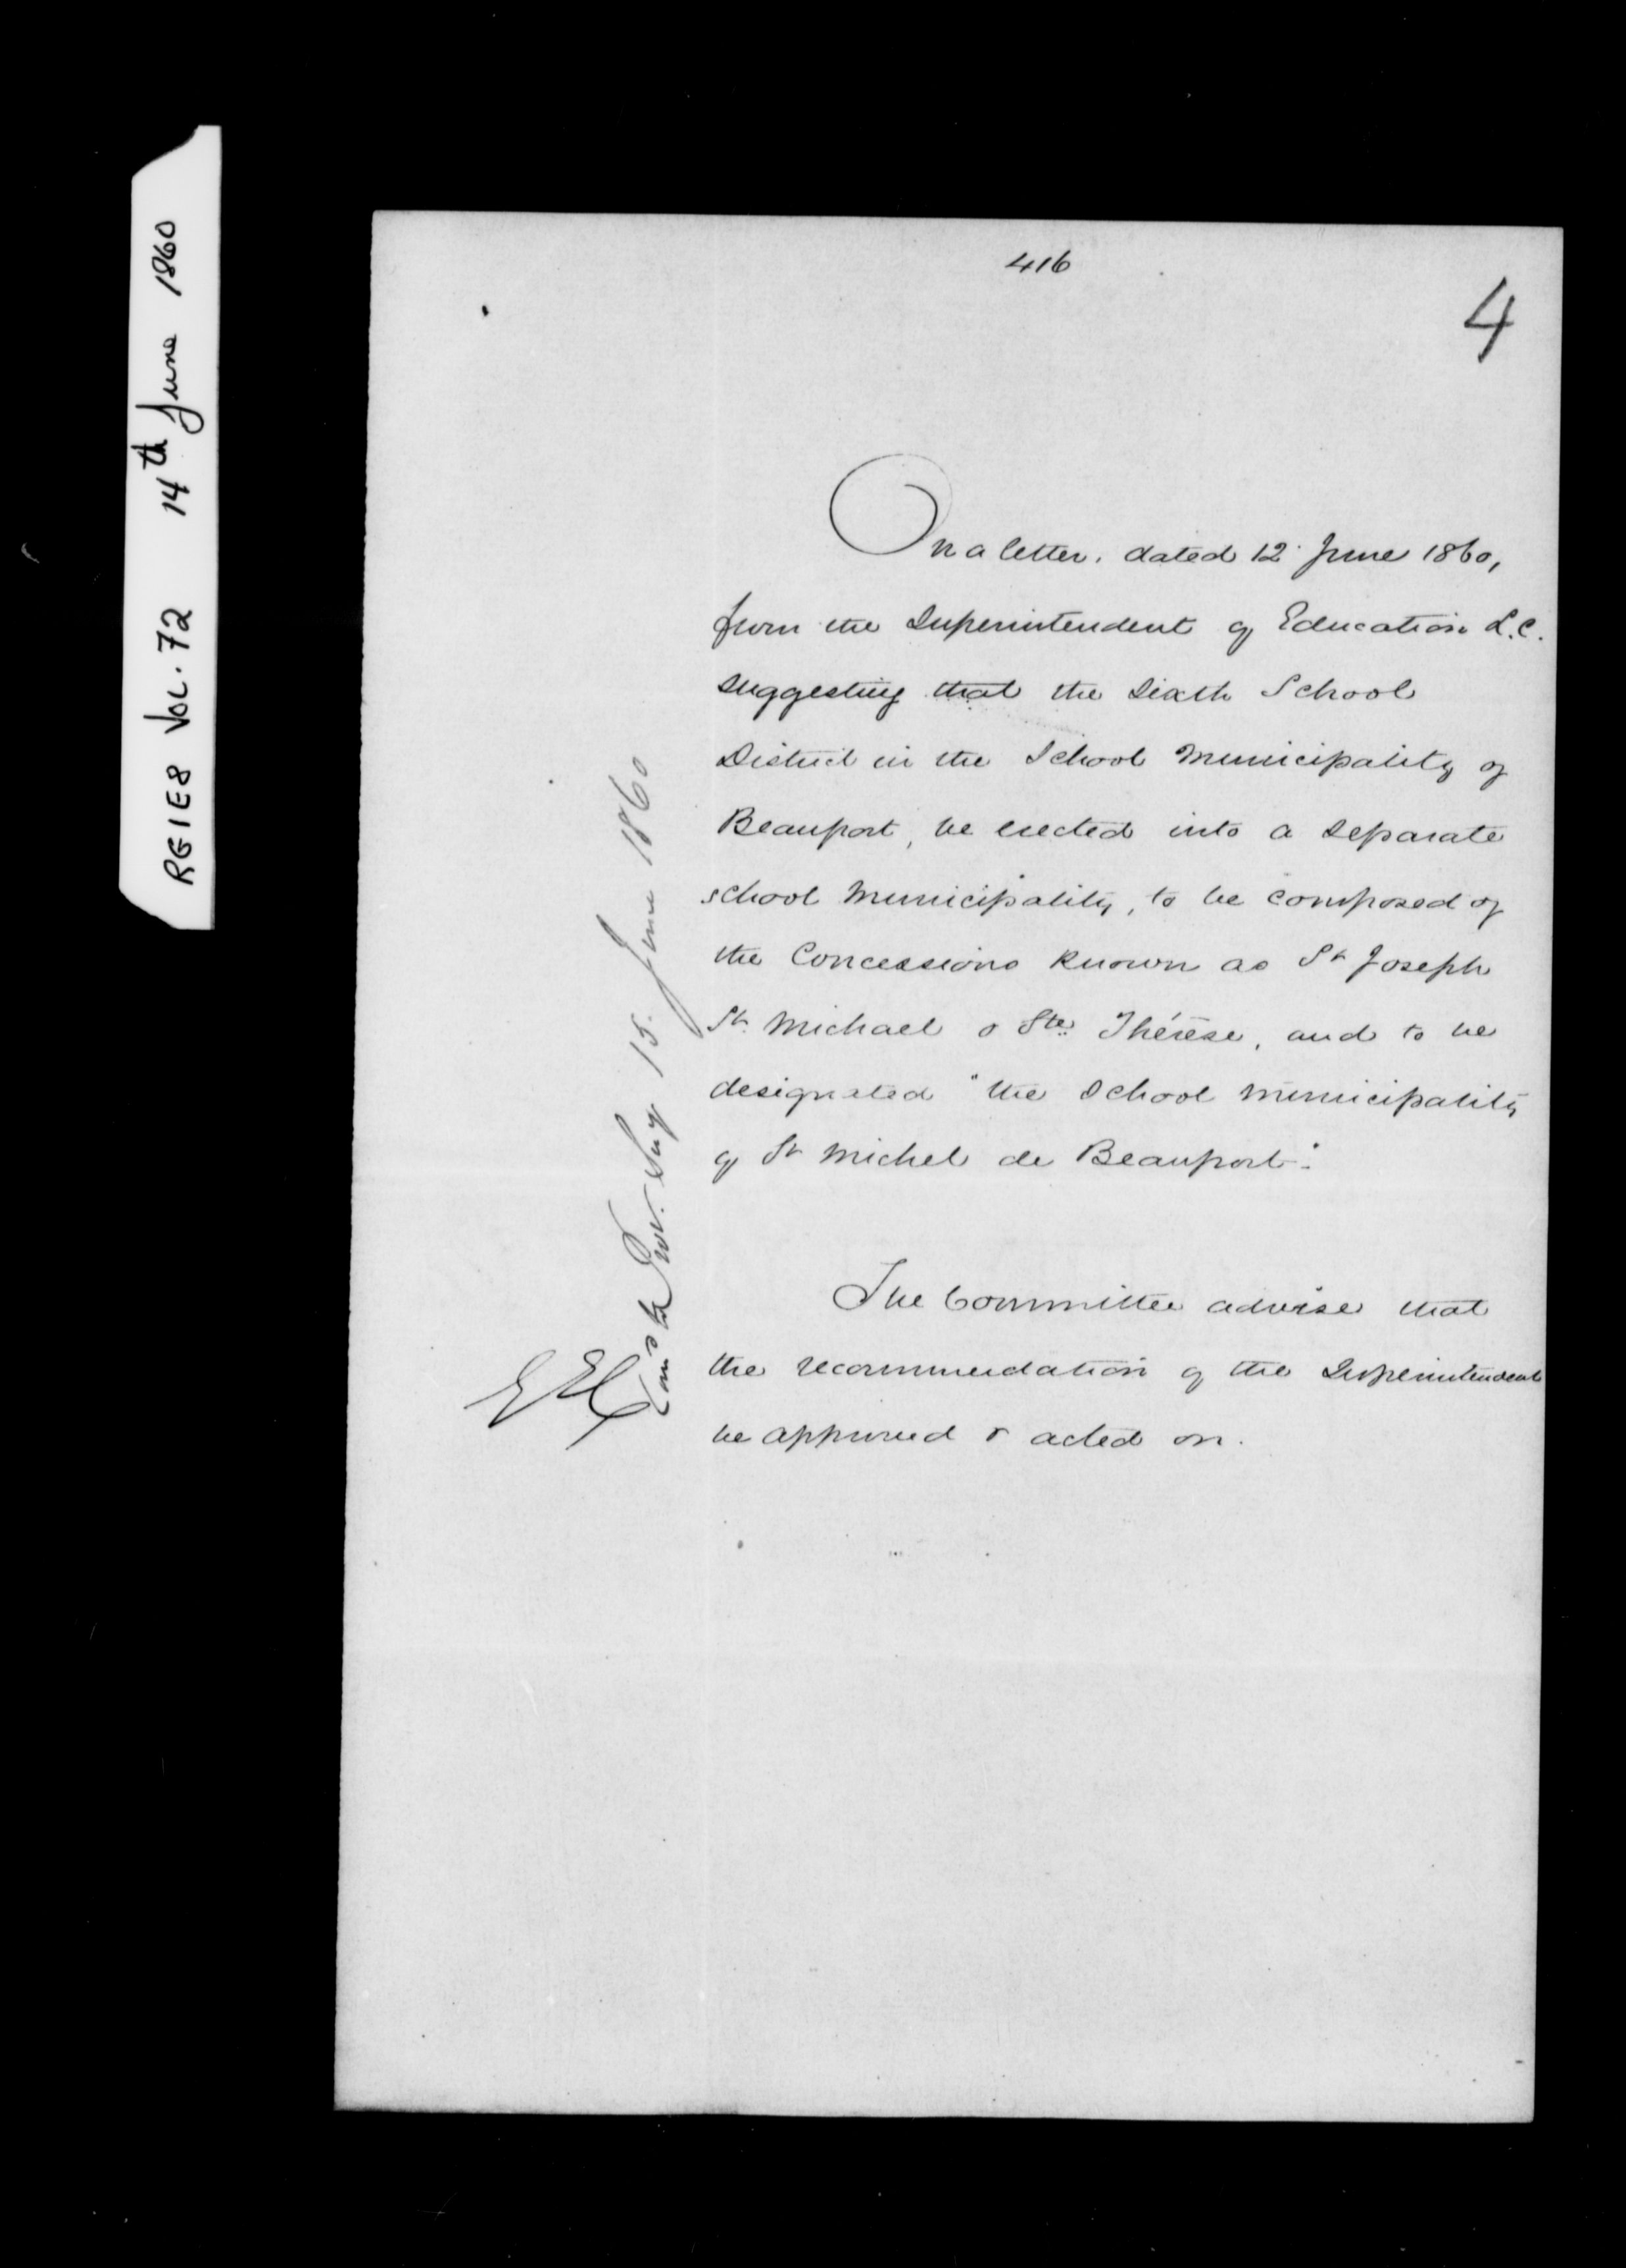 RG1E8 Vol. 72 14th June 1860
416
4
On a letter, dated 12 June 1860,
from the Superintendent of Education L.C.
suggesting that the Sixth School
District in the School Municipality of
Beauport, be erected into a separate
school Municipality, to be composed of
the Concessions known as St Joseph
St Michael & Ste Thérèse, and to be
designated "the School Municipality
of St Michel de Beauport."
The Committee advise that
the recommendation of the Superintendent
be approved & acted on.
Prov. Secy 15. June 1860